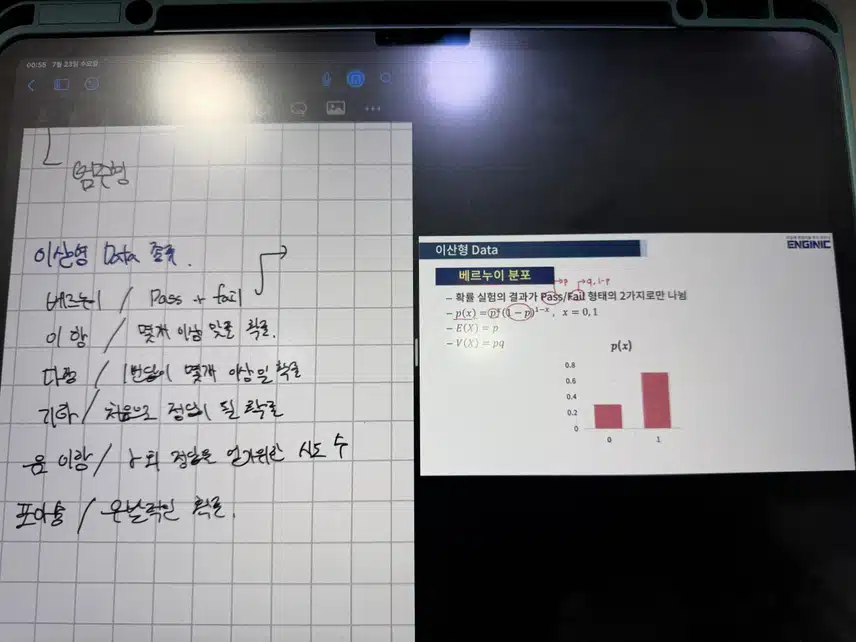 00:58 7월 23일 수요일
범주형
이산형 Data 종류.
베르누이 / Pass + fail
이항 / 몇개 이상 맞을 확률.
다항 / 1번답이 몇개 이상일 확률
기하 / 처음으로 정답이 될 확률
음이항 / r회 정답을 얻기위한 시도 수
포아송 / 확률.
이산형 Data
ENGINIC
베르누이 분포
→p →q, 1-p
– 확률 실험의 결과가 Pass/Fail 형태의 2가지로만 나뉨
– p(x) = pˣ(1 − p)¹⁻ˣ, x = 0, 1
– E(X) = p
– V(X) = pq
p(x)
0.8
0.6
0.4
0.2
0
0 1